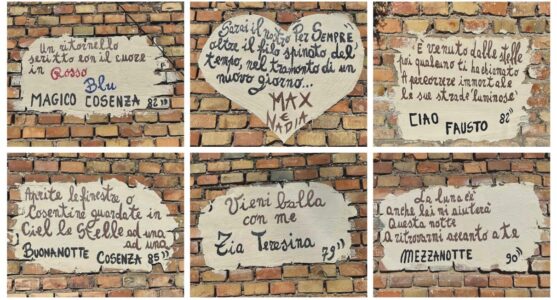 Un ritornello
scritto con il cuore
in Rosso
Blu
MAGICO COSENZA 82
Sarai il nostro Per SEMPRE
oltre il filo spinato del
tempo, nel tramonto di un
nuovo giorno...
MAX
E
NADIA
È venuto dalle stelle
poi qualcuno ti ha chiamato
A percorrere immortale
le sue strade "luminose"
CIAO FAUSTO 82"
Aprite le finestre o
Cosentine guardate in
Ciel le Stelle ad una
ad una
BUONANOTTE COSENZA 85"
Vieni balla
con me
Zia Teresina 79"
La luna c'è
anche lei mi aiuterà
Questa notte
a ritrovarmi accanto a te
MEZZANOTTE 90"